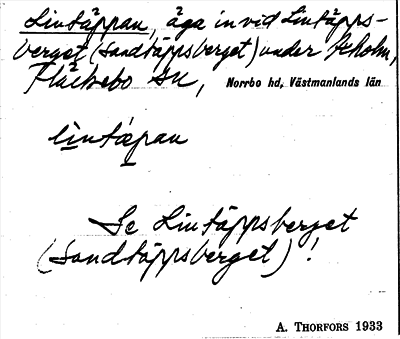 Lintäppan, äga in vid Lintäpps-
berget (Sandtäppsberget) under
Fläckebo sn, Norrbo hd, Västmanlands län
lìntápan
Se Lintäppsberget
(Sandtäppsberget)!
A. THORFORS 1933